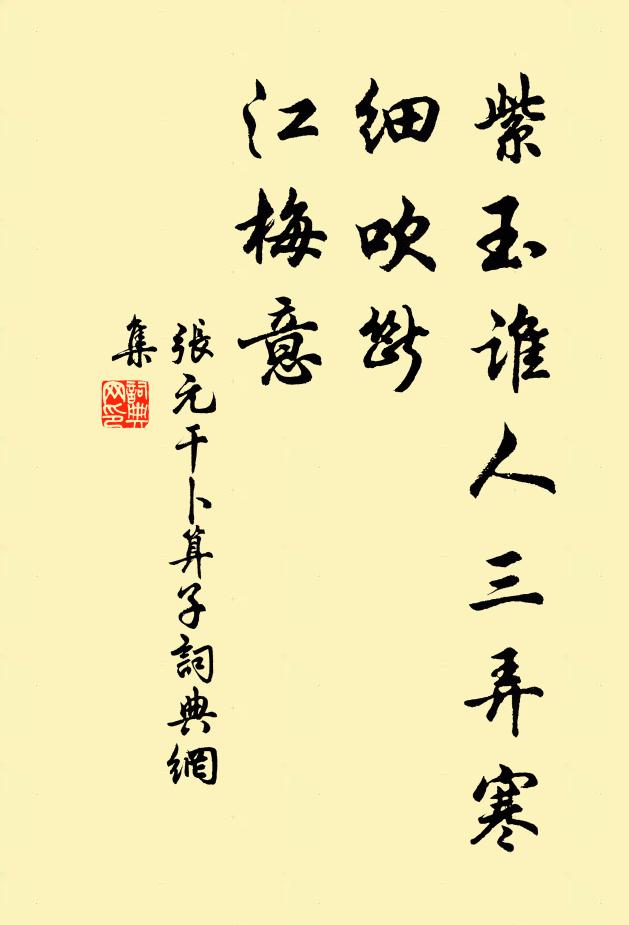 紫玉誰人三弄寒
细吹斷
江梅意
張元干卜算子詞典網
集
詞典网印